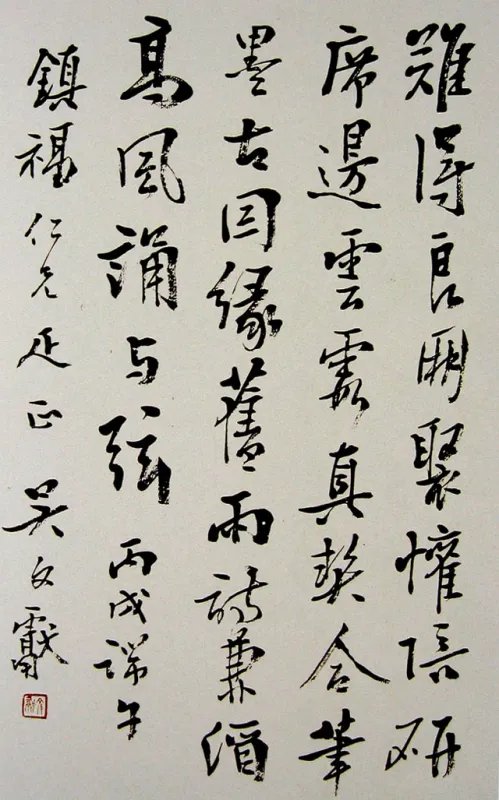 難得良朋聚懽陪研
席邊雲霞真契合筆
墨古因緣舊雨詩兼酒
高風誦与弦 丙戌端午
鎮福仁兄疋正 吴文獻